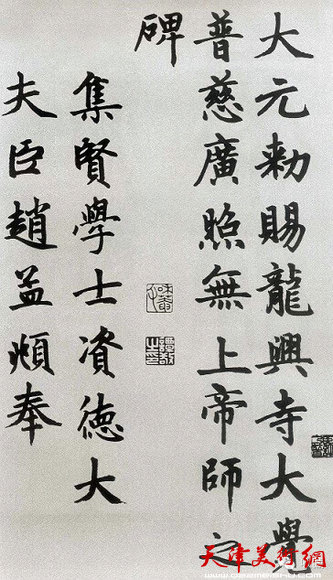 大元勅賜龍興寺大覺
普慈廣照無上帝師之
碑
集賢學士資德大
夫臣趙孟頫奉
天津美術網